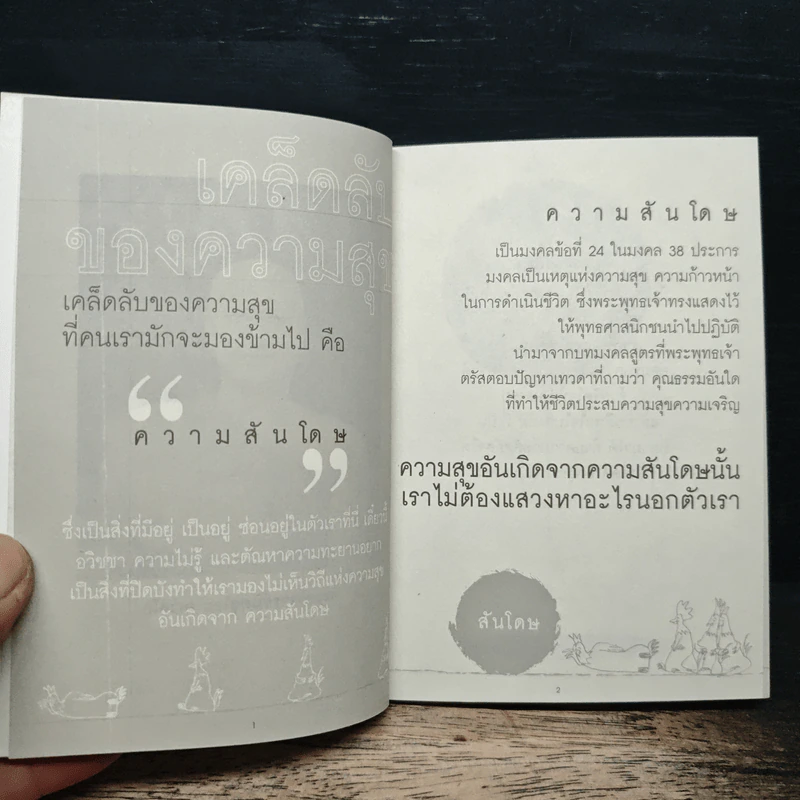 เคล็ดลับ
ของความสุข
เคล็ดลับของความสุข
ที่คนเรามักจะมองข้ามไป คือ
“
ความสันโดษ
”
ซึ่งเป็นสิ่งที่มีอยู่ เป็นอยู่ ซ่อนอยู่ในตัวเราที่นี่ เดี๋ยวนี้
อวิชชา ความไม่รู้ และตัณหาความทะยานอยาก
เป็นสิ่งที่ปิดบังทำให้เรามองไม่เห็นวิถีแห่งความสุข
อันเกิดจาก ความสันโดษ
1
ความสันโดษ
เป็นมงคลข้อที่ 24 ในมงคล 38 ประการ
มงคลเป็นเหตุแห่งความสุข ความก้าวหน้า
ในการดำเนินชีวิต ซึ่งพระพุทธเจ้าทรงแสดงไว้
ให้พุทธศาสนิกชนนำไปปฏิบัติ
นำมาจากบทมงคลสูตรที่พระพุทธเจ้า
ตรัสตอบปัญหาเทวดาที่ถามว่า คุณธรรมอันใด
ที่ทำให้ชีวิตประสบความสุขความเจริญ
ความสุขอันเกิดจากความสันโดษนั้น
เราไม่ต้องแสวงหาอะไรนอกตัวเรา
สันโดษ
2